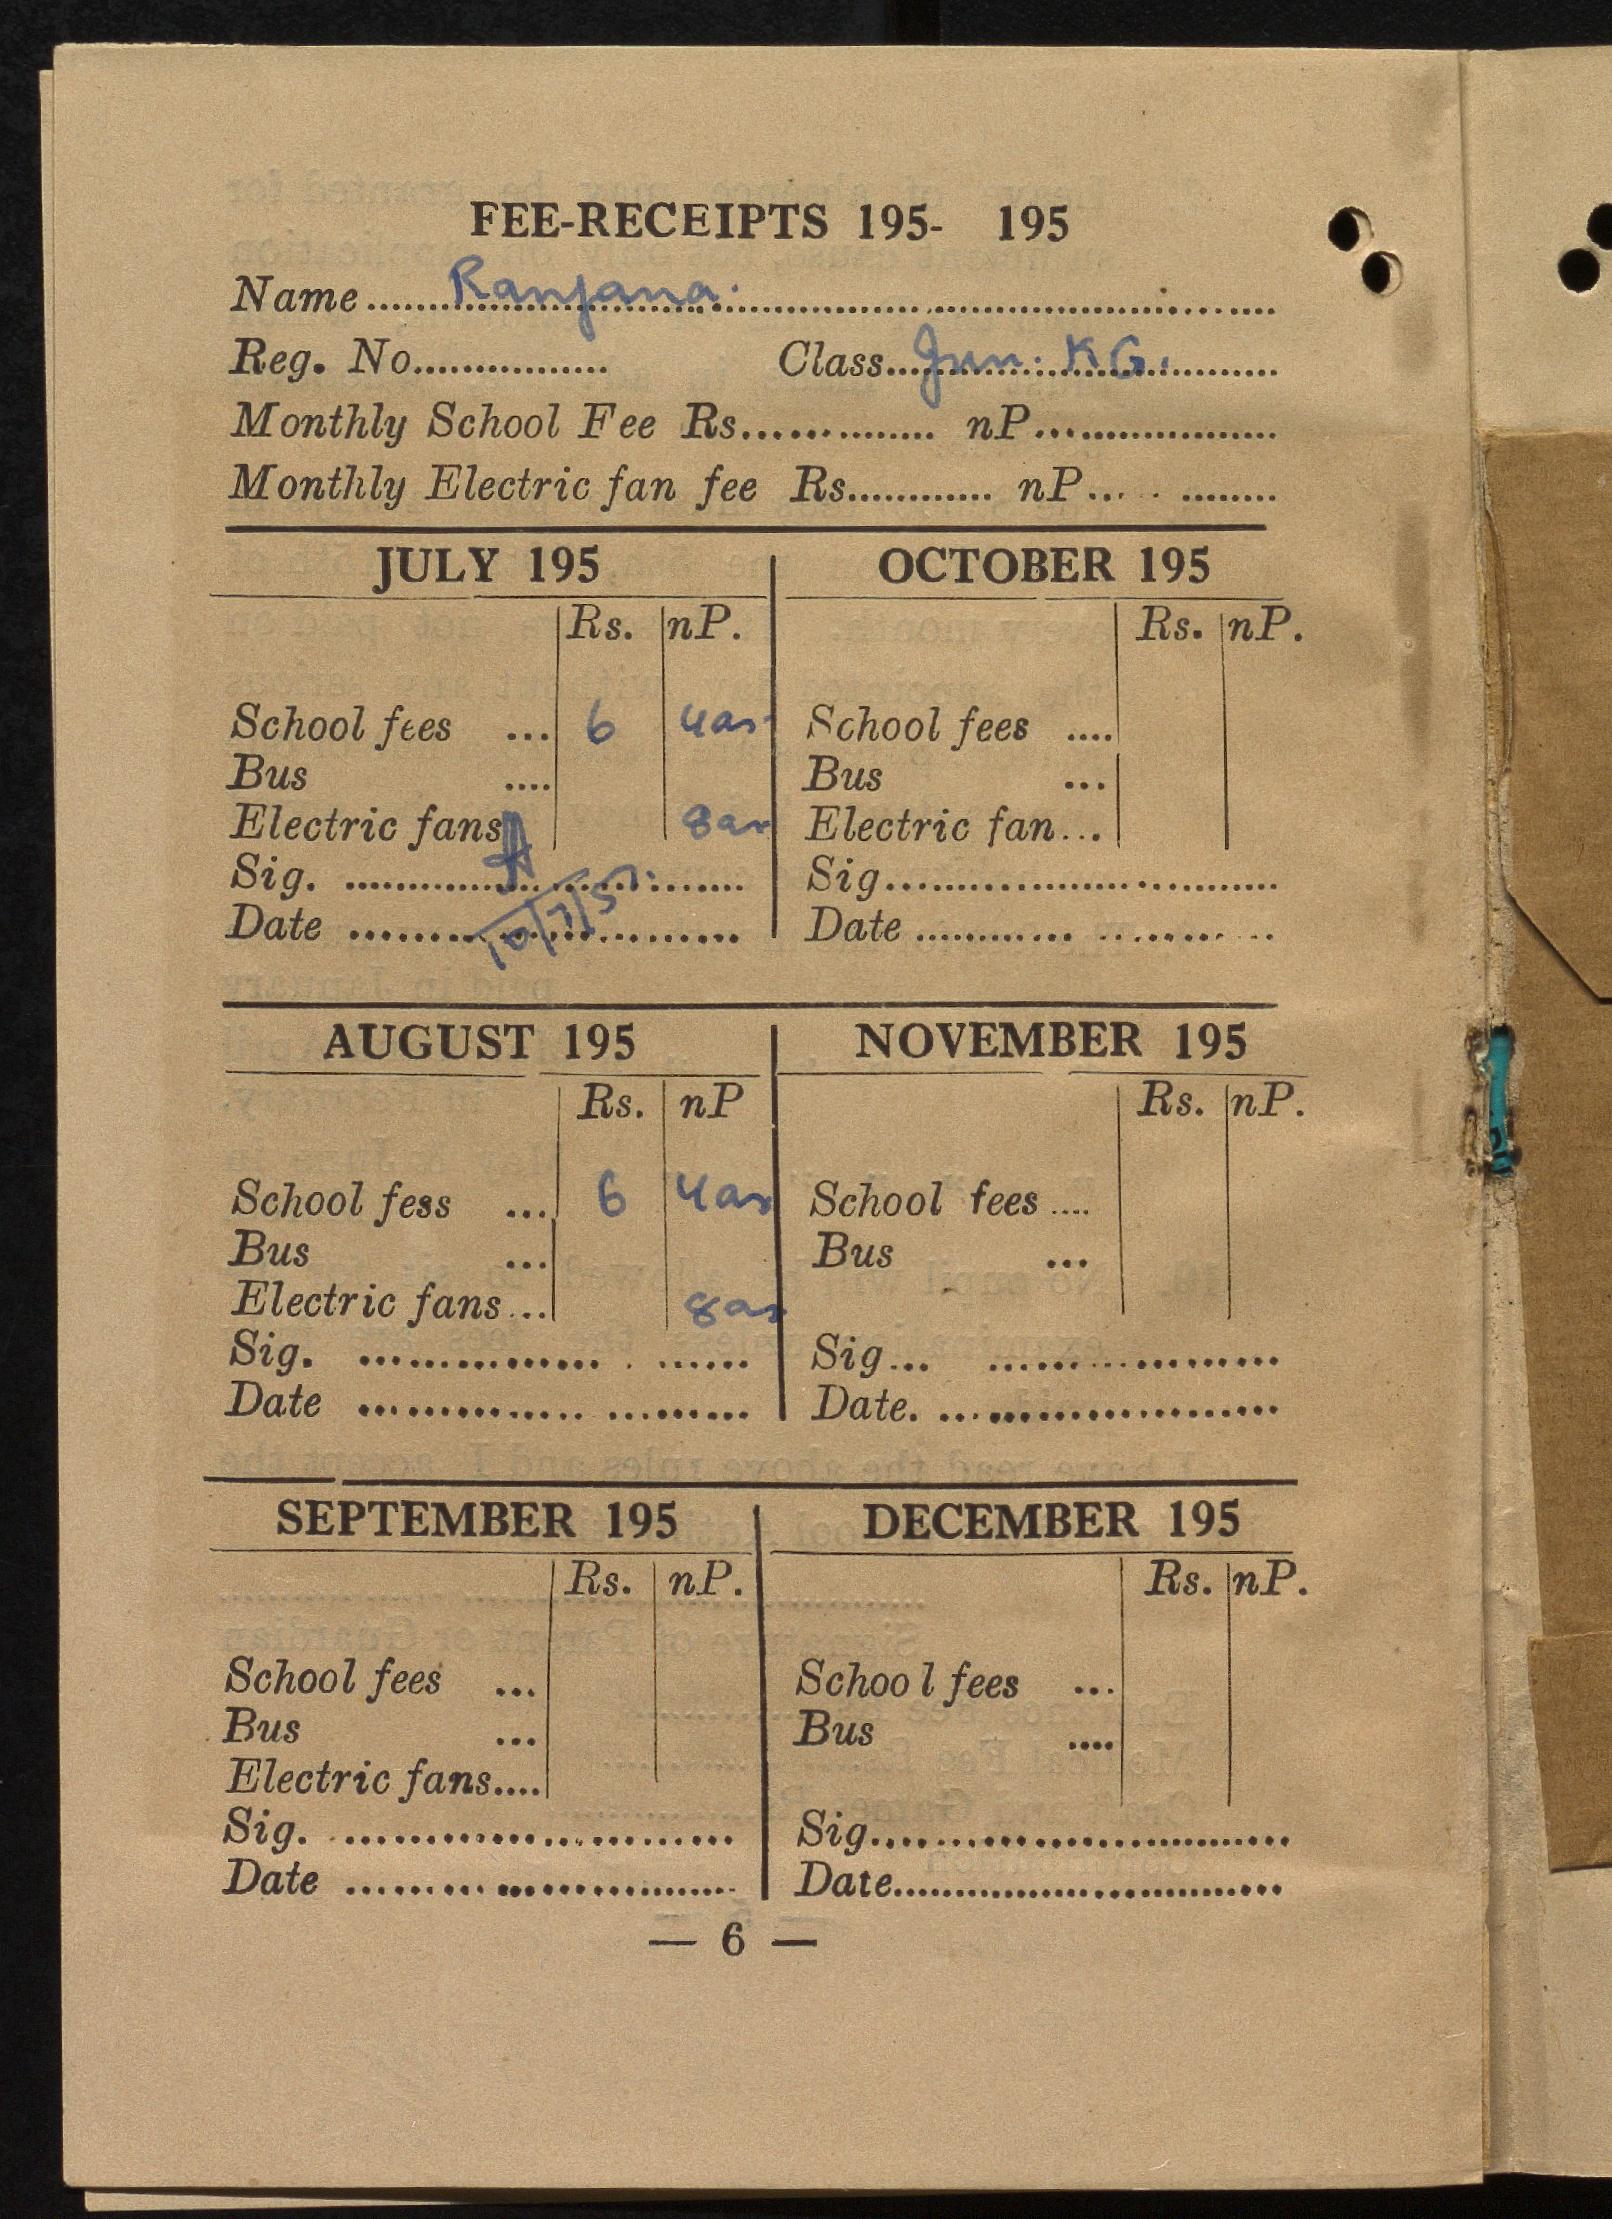 FEE-RECEIPTS 195-   195
Name........Ranjana.......................................
Reg. No................ Class....Jun. KG.........
Monthly School Fee Rs............... nP...................
Monthly Electric fan fee Rs............ nP..... ........
JULY 195
Rs. nP.
School fees ... 6 4as
Bus ....
Electric fans 8as
Sig. ..............................
Date 10/7/57.
OCTOBER 195
Rs. nP.
School fees ....
Bus ...
Electric fan...
Sig..............................
Date ............ ............
AUGUST 195
Rs. nP
School fess ... 6 4as
Bus ...
Electric fans... 8as
Sig. ............... . ......
Date .............. .........
NOVEMBER 195
Rs. nP.
School fees ....
Bus ...
Sig... ....................
Date. .......................
SEPTEMBER 195
Rs. nP.
School fees ...
Bus ...
Electric fans....
Sig. ............................
Date ............................
DECEMBER 195
Rs. nP.
School fees ...
Bus ....
Sig..............................
Date..............................
— 6 —